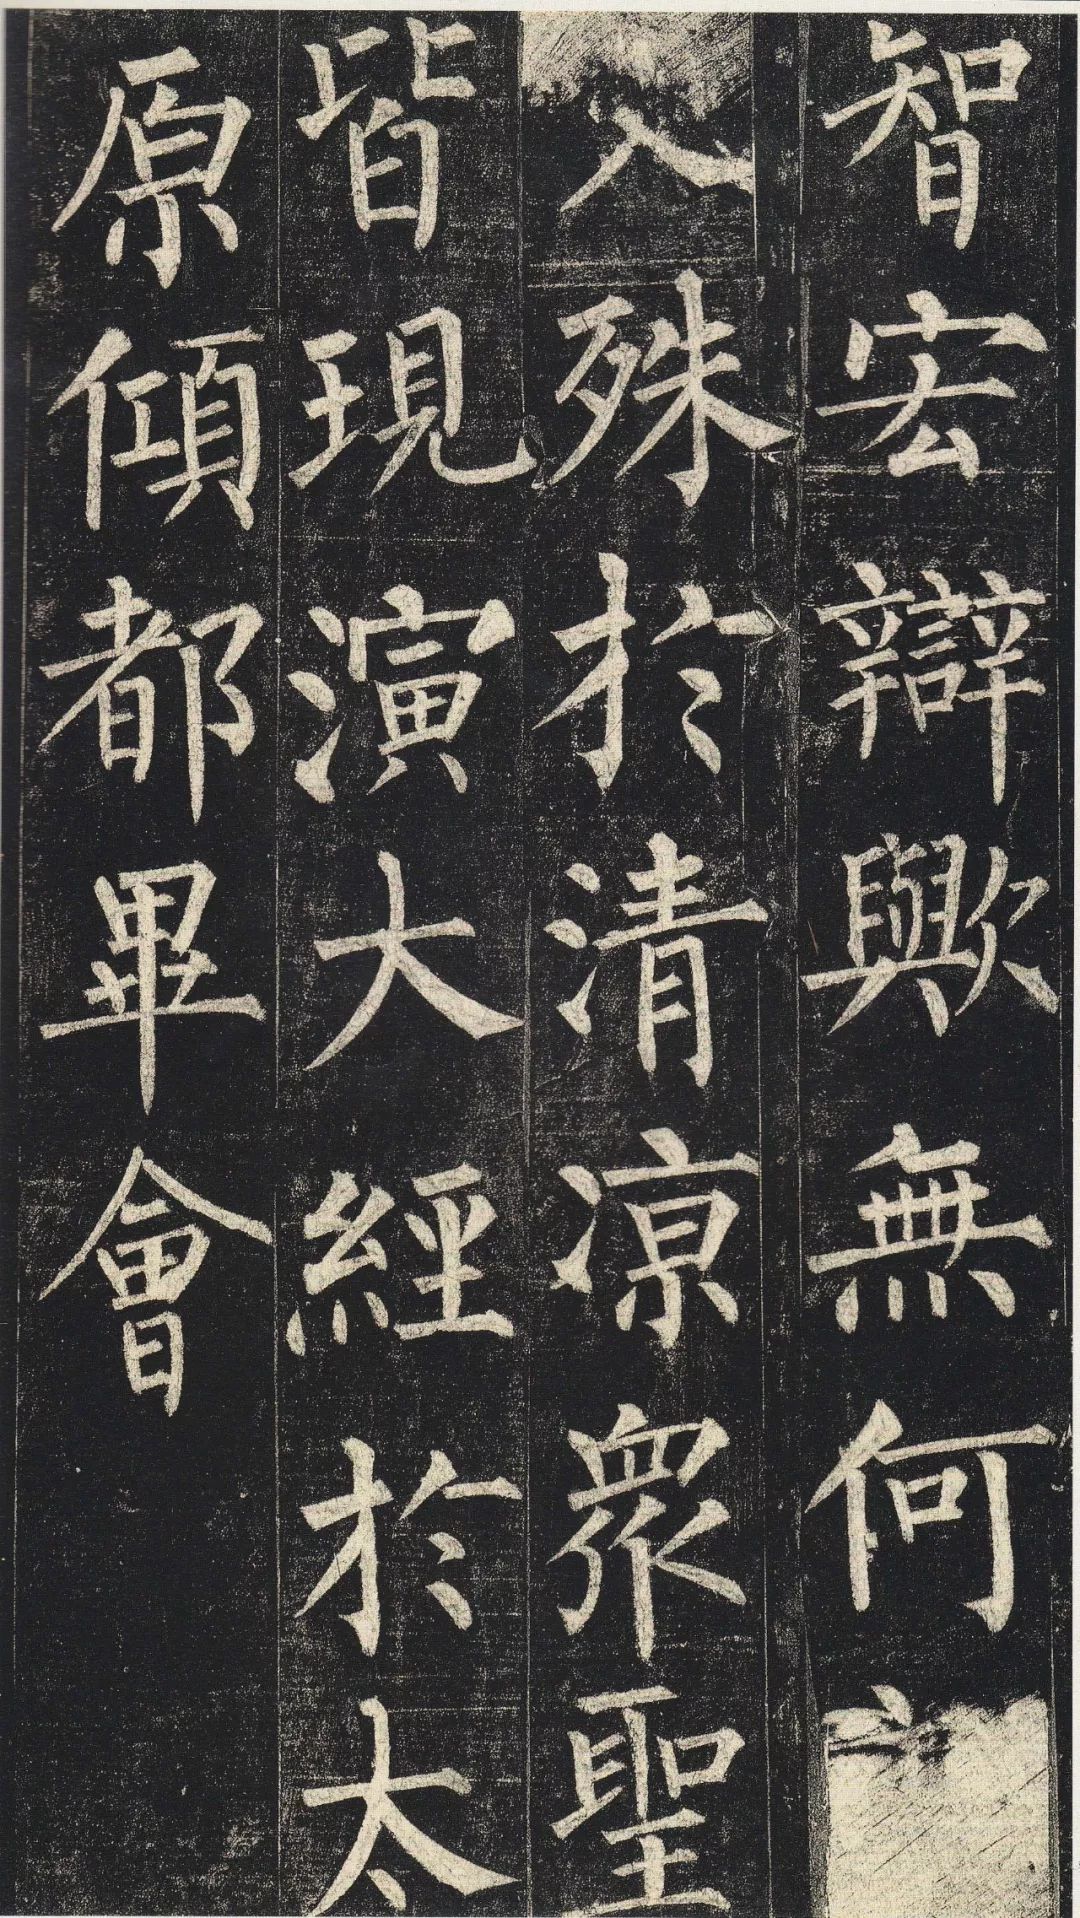 智宏辯歟無何
入殊於清涼眾聖
皆現演大經於太
原傾都畢會